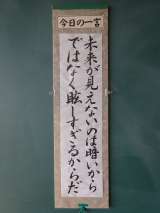 今日の一言
未来が見えないのは暗いから
ではなく眩しすぎるからだ